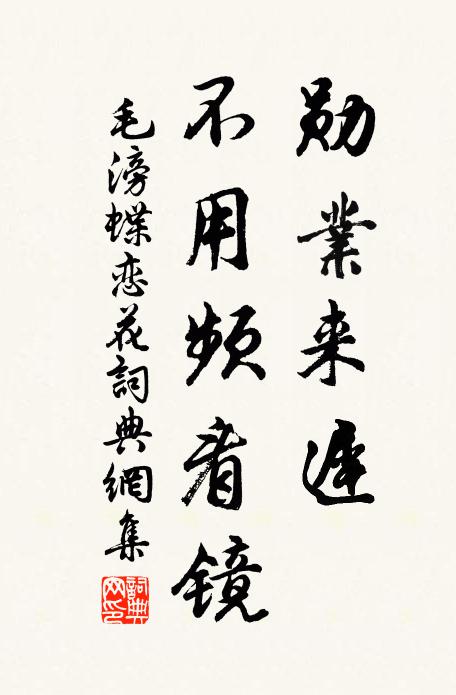 勋業来遅
不用频看镜
毛滂蝶恋花詞典網集
詞典网印